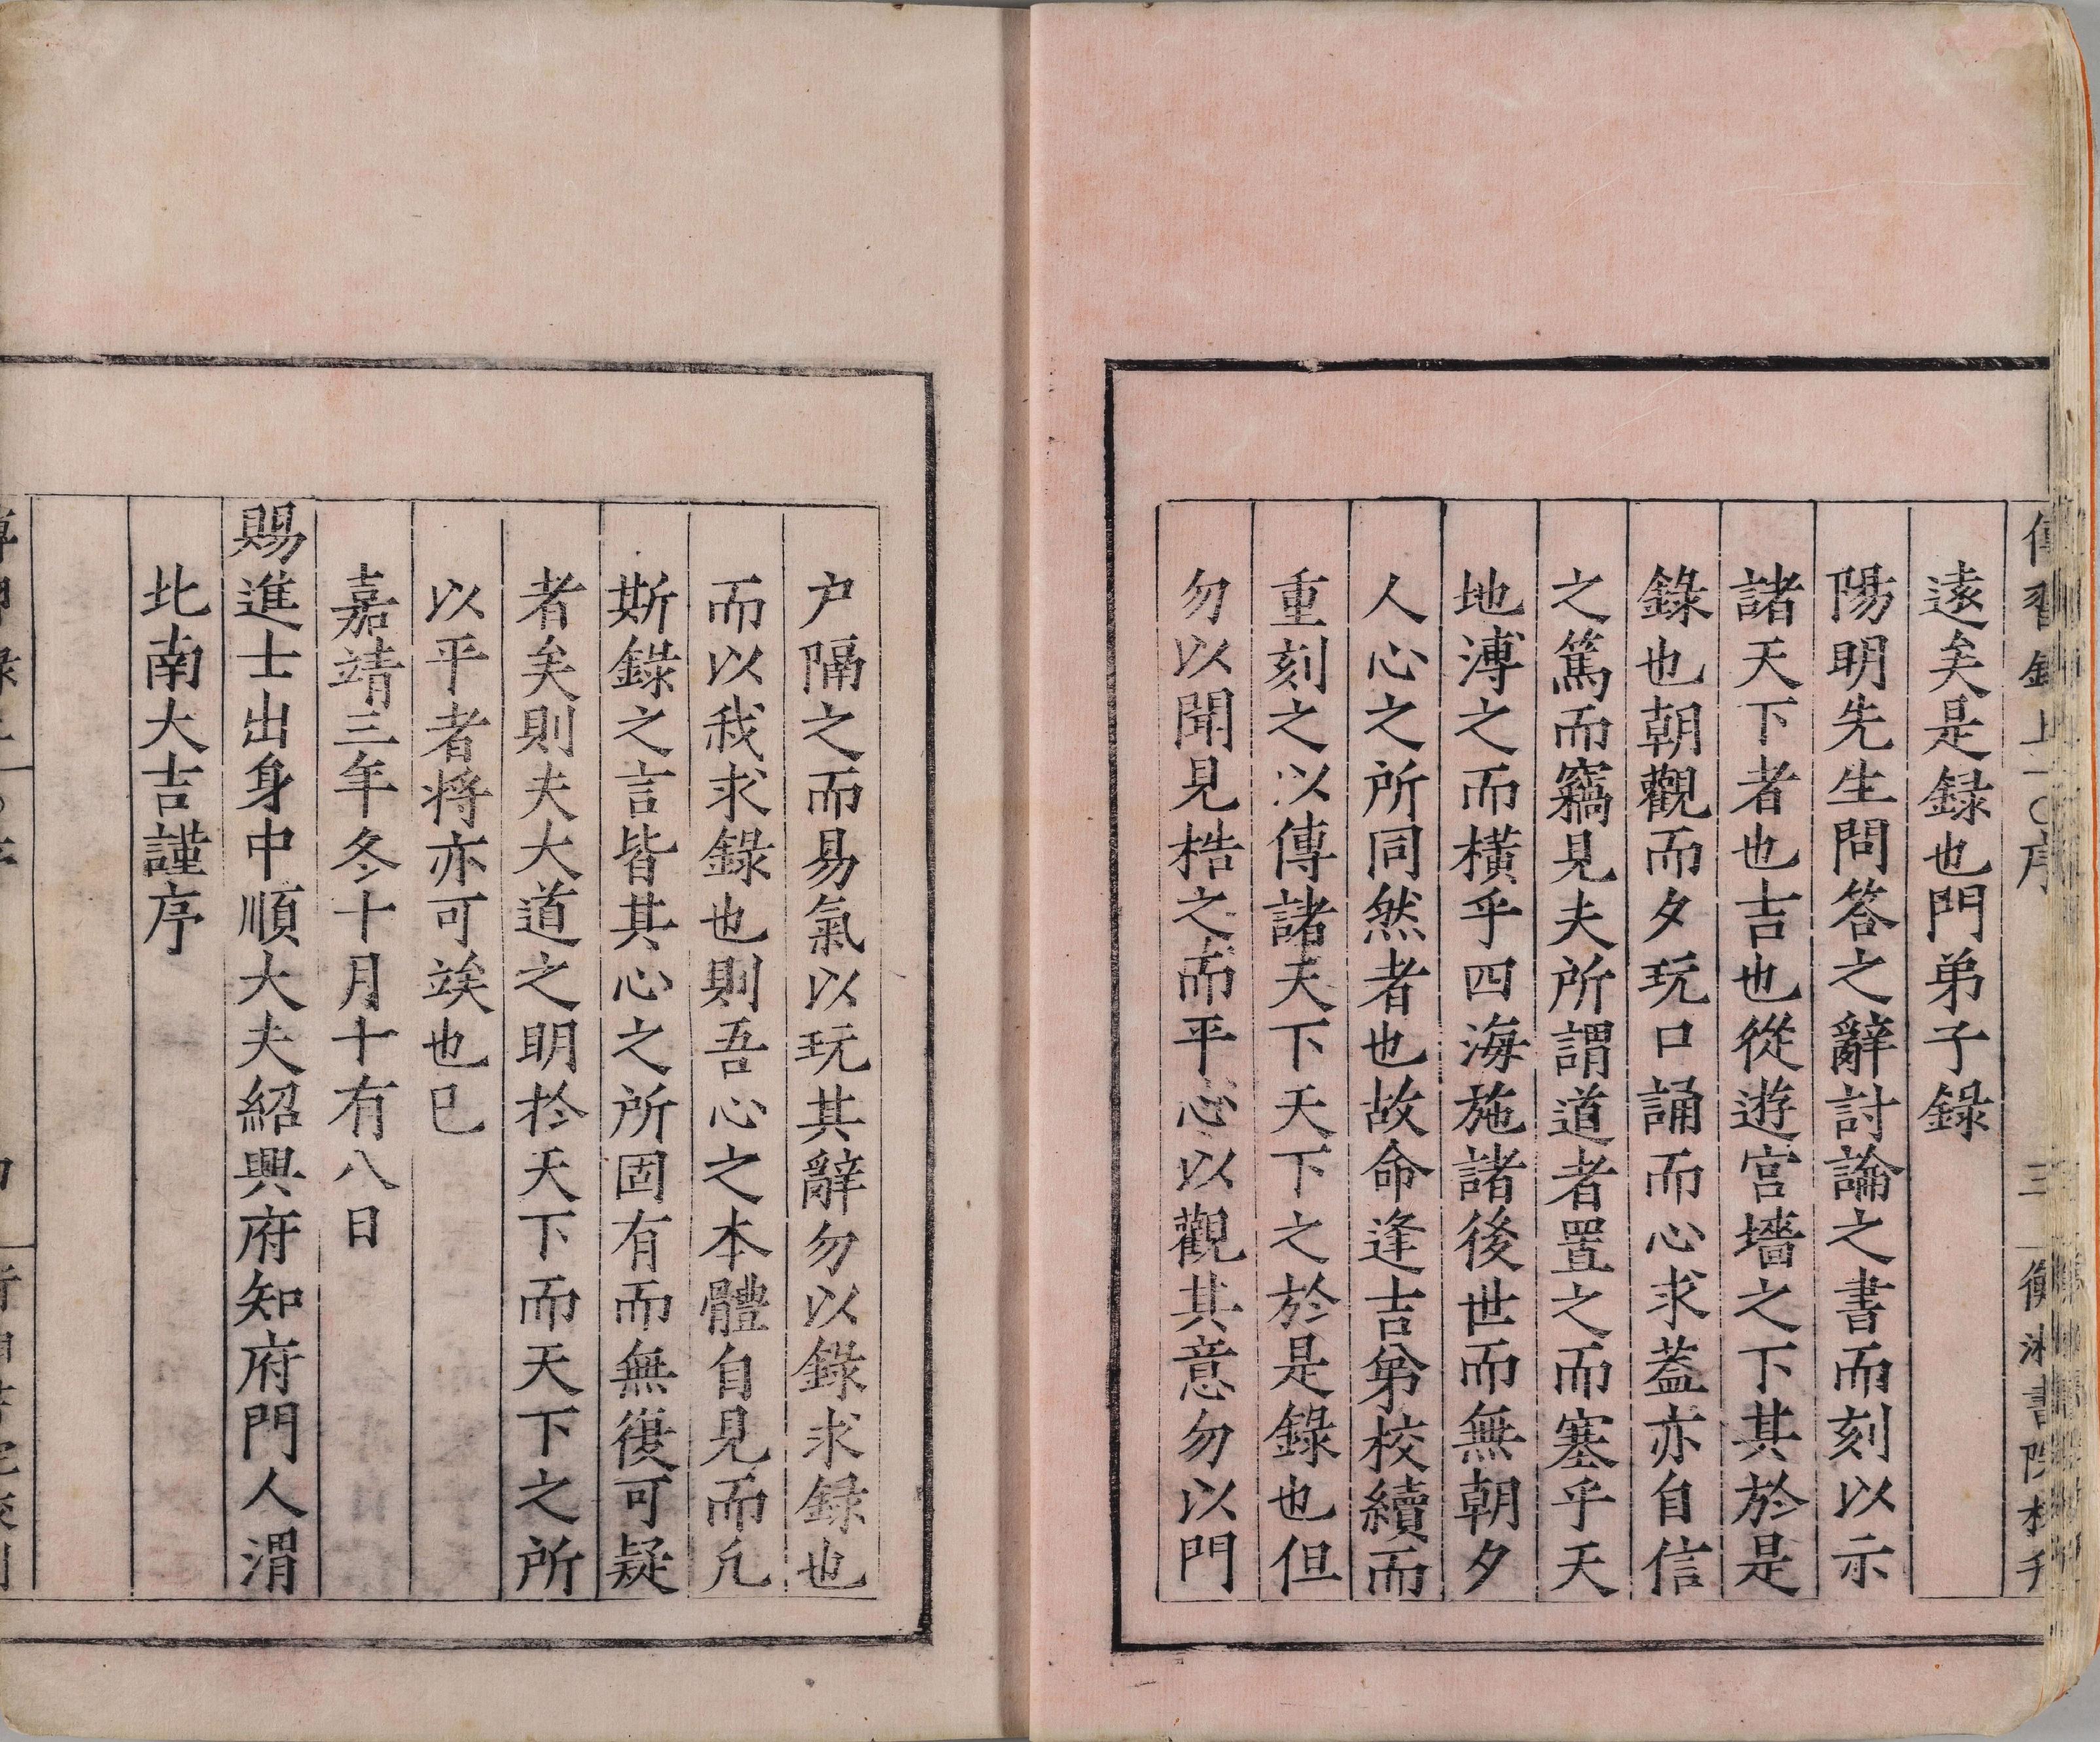 傳習錄上一○序 三 衡湘書院校刊
遠矣是録也門弟子錄
陽明先生問答之辭討論之書而刻以示
諸天下者也吉也從遊宫墻之下其於是
錄也朝觀而夕玩口誦而心求葢亦自信
之篤而竊見夫所謂道者置之而塞乎天
地溥之而橫乎四海施諸後世而無朝夕
人心之所同然者也故命逢吉弟校續而
重刻之以傳諸天下天下之於是錄也但
勿以聞見梏之而平心以觀其意勿以門
户隔之而易氣以玩其辭勿以錄求録也
而以我求錄也則吾心之本體自見而凢
斯錄之言皆其心之所固有而無復可疑
者矣則夫大道之明扵天下而天下之所
以平者将亦可竢也已
嘉靖三年冬十月十有八日
賜進士出身中順大夫紹興府知府門人渭
北南大吉謹序